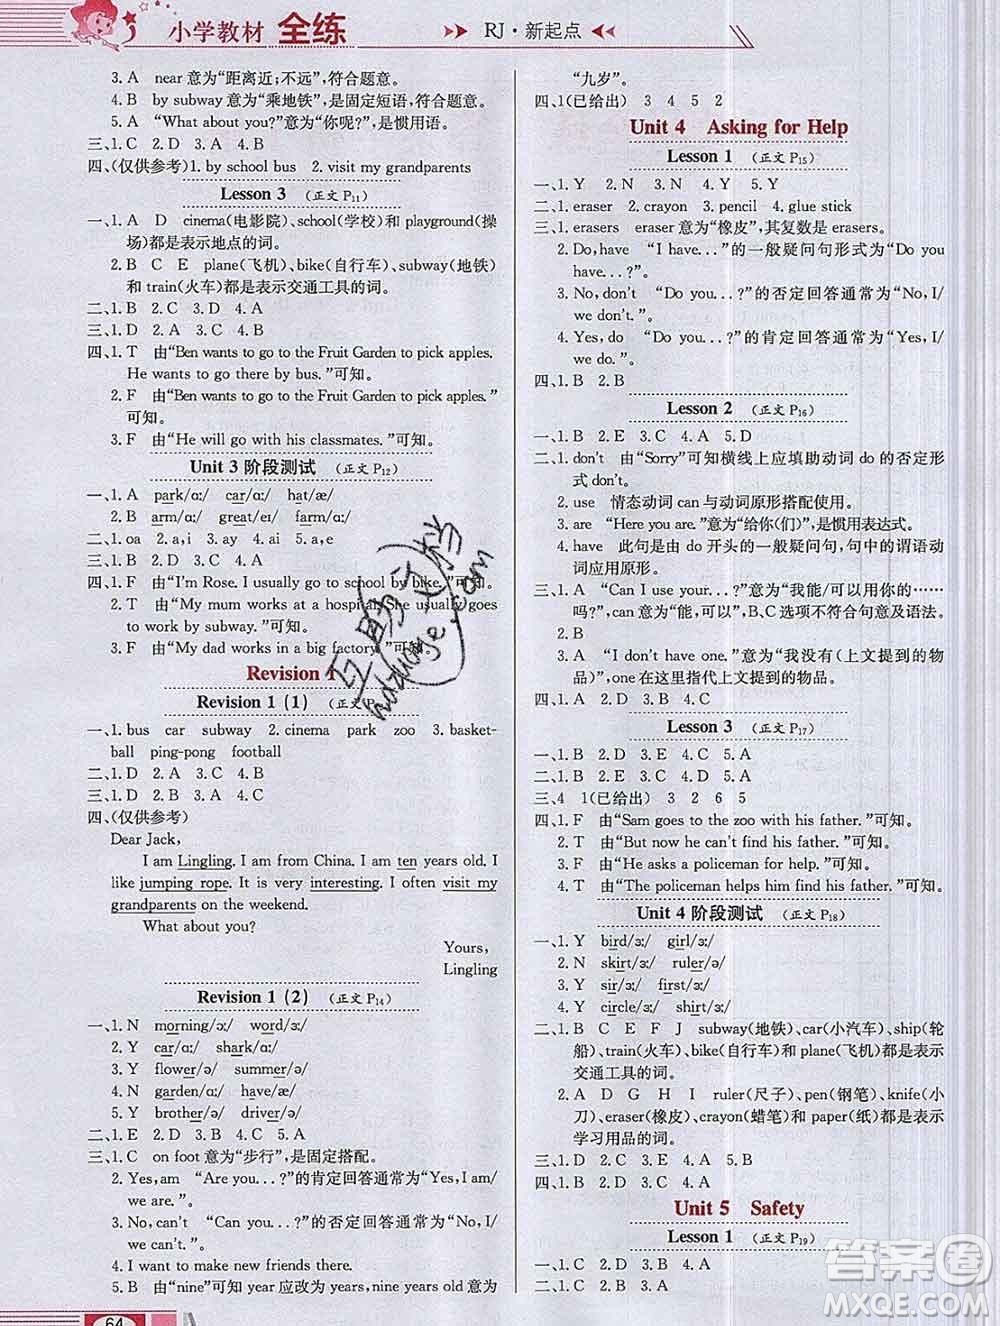 小学教材 全练
RJ·新起点
3. A near意为“距离近;不远”,符合题意。
4. B by subway意为“乘地铁”,是固定短语,符合题意。
5. A “What about you?”意为“你呢?”,是惯用语。
三、1. C 2. D 3. A 4. B
四、(仅供参考)1. by school bus 2. visit my grandparents
Lesson 3 (正文 P11)
一、1. A D cinema(电影院)、school(学校)和 playground(操
场)都是表示地点的词。
2. B C E plane(飞机)、bike(自行车)、subway(地铁)
和 train(火车)都是表示交通工具的词。
二、1. B 2. C 3. D 4. A
三、1. D 2. A 3. C 4. B
四、1. T 由“Ben wants to go to the Fruit Garden to pick apples.
He wants to go there by bus. ”可知。
2. F 由“Ben wants to go to the Fruit Garden to pick apples. ”
可知。
3. F 由“He will go with his classmates. ”可知。
Unit 3 阶段测试 (正文 P12)
一、1. A park/ɑː/ car/ɑː/ hat/æ/
2. B arm/ɑː/ great/eɪ/ farm/ɑː/
二、1. oa 2. a,i 3. ay 4. ai 5. a,e
三、1. B 2. A 3. C 4. B 5. A
四、1. F 由“I'm Rose. I usually go to school by bike. ”可知。
2. T 由“My mum works at a hospital, she usually goes
to work by subway. ”可知。
3. F 由“My dad works in a big factory. ”可知。
Revision 1
Revision 1 (1) (正文
一、1. bus car subway 2. cinema park zoo 3. basket-
ball ping-pong football
二、1. D 2. A 3. C 4. B
三、1. B 2. D 3. A 4. C 5. A
四、(仅供参考)
Dear Jack,
I am Lingling. I am from China. I am ten years old. I
like jumping rope. It is very interesting. I often visit my
grandparents on the weekend.
What about you?
Yours,
Lingling
Revision 1 (2) (正文 P14)
一、1. N morning/ɔː/ word/ɜː/
2. Y car/ɑː/ shark/ɑː/
3. Y flower/ə/ summer/ə/
4. N garden/ɑː/ her/ɜː/
5. Y brother/ə/ driver/ə/
二、1. E 2. D 3. B 4. C 5. A
三、1. C on foot意为“步行”,是固定搭配。
2. Yes,am “Are you. . . ?”的肯定回答通常为“Yes, I am/
we are. ”。
3. No,can't “Can you. . . ?”的否定回答通常为“No, I/
we can't. ”。
4. I want to make new friends there.
5. B 由“nine”可知 year 应改为 years,nine years old 意为
64
“九岁”。
四、1(已给出) 3 4 5 2
Unit 4 Asking for Help
Lesson 1 (正文 P15)
一、1. Y 2. N 3. N 4. Y 5. Y
二、1. eraser 2. crayon 3. pencil 4. glue stick
三、1. erasers eraser意为“橡皮”,其复数是 erasers。
2. Do,have “I have. . . ”的一般疑问句形式为“Do you
have. . . ?”。
3. No,don't “Do you. . . ?”的否定回答通常为“No, I/
we don't. ”。
4. Yes,do “Do you. . . ?”的肯定回答通常为“Yes, I/
we do. ”。
四、1. B 2. B
Lesson 2 (正文 P16)
一、1. B 2. E 3. C 4. A 5. D
二、1. don't 由“Sorry”可知横线上应填助动词 do 的否定形
式 don't。
2. use 情态动词 can 与动词原形搭配使用。
3. are “Here you are. ”意为“给你(们)”,是惯用表达式。
4. have 此句是由 do 开头的一般疑问句,句中的谓语动
词应用原形。
三、1. A “Can I use your. . . ?”意为“我能/可以用你的……
吗?”,can 意为“能,可以”,B、C 选项不符合句意及语法。
2. B
3. A “I don't have one. ”意为“我没有(上文提到的物
品)”,one 在这里指代上文提到的物品。
四、1. A 2. D 3. B 4. C
Lesson 3 (正文 P17)
一、1. B 2. D 3. E 4. C 5. A
二、1. B 2. D 3. C 4. A
三、4 1(已给出) 3 2 6 5
四、1. F 由“Sam goes to the zoo with his father. ”可知。
2. T 由“But now he can't find his father. ”可知。
3. F 由“He asks a policeman for help. ”可知。
4. T 由“The policeman helps him find his father. ”可知。
Unit 4 阶段测试 (正文 P18)
一、1. Y bird/ɜː/ girl/ɜː/
2. N skirt/ɜː/ ruler/ə/
3. Y sir/ɜː/ first/ɜː/
4. Y circle/ɜː/ shirt/ɜː/
二、1. B C E F J subway(地铁)、car(小汽车)、ship(轮
船)、train(火车)、bike(自行车)和 plane(飞机)都是表示
交通工具的词。
2. A D G H I ruler(尺子)、pen(钢笔)、knife(小
刀)、eraser(橡皮)、crayon(蜡笔)和 paper(纸)都是表示
学习用品的词。
三、1. D 2. C 3. E 4. A 5. B
四、1. C 2. B 3. A 4. A
Unit 5 Safety
Lesson 1 (正文 P19)
一、1. C 2. D 3. B 4. A
二、1. C 2. B 3. A
答案圈
MXQE.COM